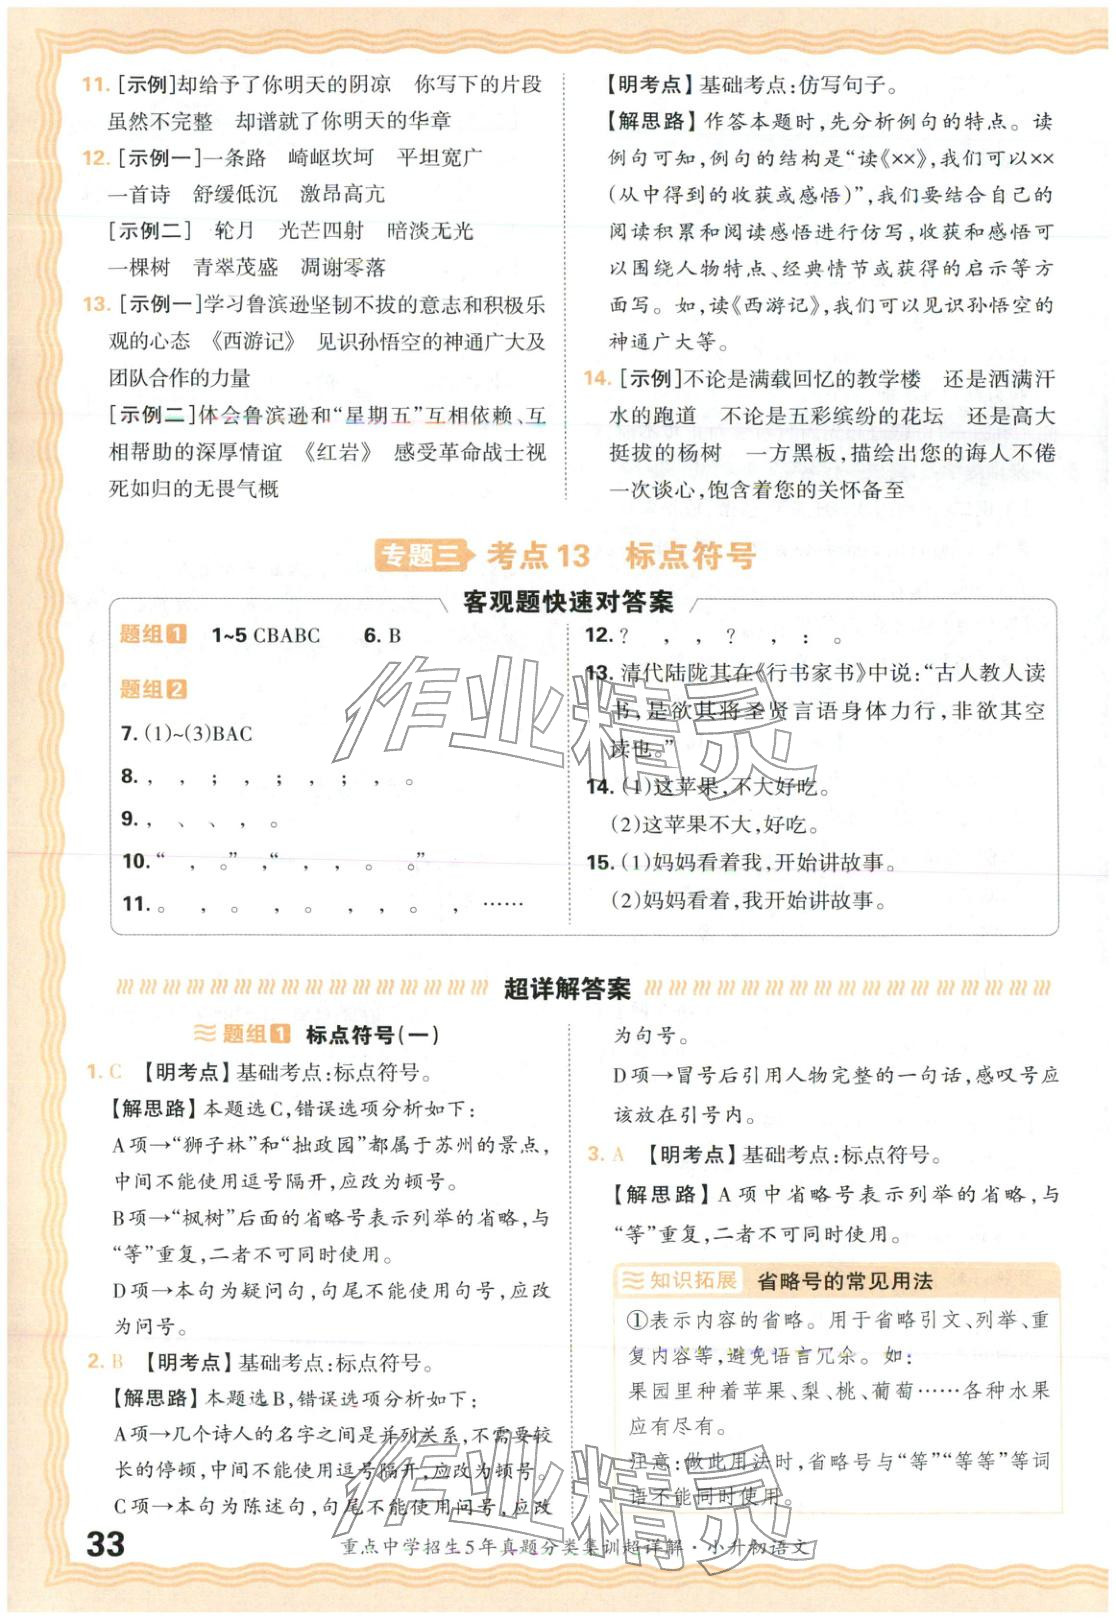 11. [示例]却给予了你明天的阴凉　你写下的片段
虽然不完整　却谱就了你明天的华章
12. [示例一]一条路　崎岖坎坷　平坦宽广
一首诗　舒缓低沉　激昂高亢
[示例二]　轮月　光芒四射　暗淡无光
一棵树　青翠茂盛　凋谢零落
13. [示例一]学习鲁滨逊坚韧不拔的意志和积极乐
观的心态　《西游记》　见识孙悟空的神通广大及
团队合作的力量
[示例二]体会鲁滨逊和“星期五”互相依赖、互
相帮助的深厚情谊　《红岩》　感受革命战士视
死如归的无畏气概
【明考点】基础考点:仿写句子。
【解思路】作答本题时,先分析例句的特点。读
例句可知,例句的结构是“读《××》,我们可以××
(从中得到的收获或感悟)”,我们要结合自己的
阅读积累和阅读感悟进行仿写,收获和感悟可
以围绕人物特点、经典情节或获得的启示等方
面写。如,读《西游记》,我们可以见识孙悟空的
神通广大等。
14. [示例]不论是满载回忆的教学楼　还是洒满汗
水的跑道　不论是五彩缤纷的花坛　还是高大
挺拔的杨树　一方黑板,描绘出您的诲人不倦
一次谈心,饱含着您的关怀备至
专题三 考点13　标点符号
客观题快速对答案
题组1　1~5 CBABC　6. B
题组2
7. (1)~(3)BAC
8. ，　，　；　，　；　，　；　，　。
9. ，　、　、　，　。
10. “　，　。”　，“　，　，　。　。”
11. 。　，　。　，　。　，　，　。　，　……
12. ？　，　，　？　，　：　。
13. 清代陆陇其在《行书家书》中说:“古人教人读
书,是欲其将圣贤言语身体力行,非欲其空
读也。”
14. (1)这苹果,不大好吃。
(2)这苹果不大,好吃。
15. (1)妈妈看着我,开始讲故事。
(2)妈妈看着,我开始讲故事。
超详解答案
题组1　标点符号(一)
1. C　【明考点】基础考点:标点符号。
【解思路】本题选C,错误选项分析如下:
A项→“狮子林”和“拙政园”都属于苏州的景点,
中间不能使用逗号隔开,应改为顿号。
B项→“枫树”后面的省略号表示列举的省略,与
“等”重复,二者不可同时使用。
D项→本句为疑问句,句尾不能使用句号,应改
为问号。
2. B　【明考点】基础考点:标点符号。
【解思路】本题选B,错误选项分析如下:
A项→几个诗人的名字之间是并列关系,不需要较
长的停顿,中间不能使用逗号隔开,应改为顿号。
C项→本句为陈述句,句尾不能使用问号,应改
为句号。
D项→冒号后引用人物完整的一句话,感叹号应
该放在引号内。
3. A　【明考点】基础考点:标点符号。
【解思路】A项中省略号表示列举的省略,与
“等”重复,二者不可同时使用。
知识拓展　省略号的常见用法
①表示内容的省略。用于省略引文、列举、重
复内容等,避免语言冗余。如:
果园里种着苹果、梨、桃、葡萄……各种水果
应有尽有。
注意:做此用法时,省略号与“等”“等等”等词
语不能同时使用。
33
重点中学招生5年真题分类集训超详解·小升初语文
作业精灵
作业精灵